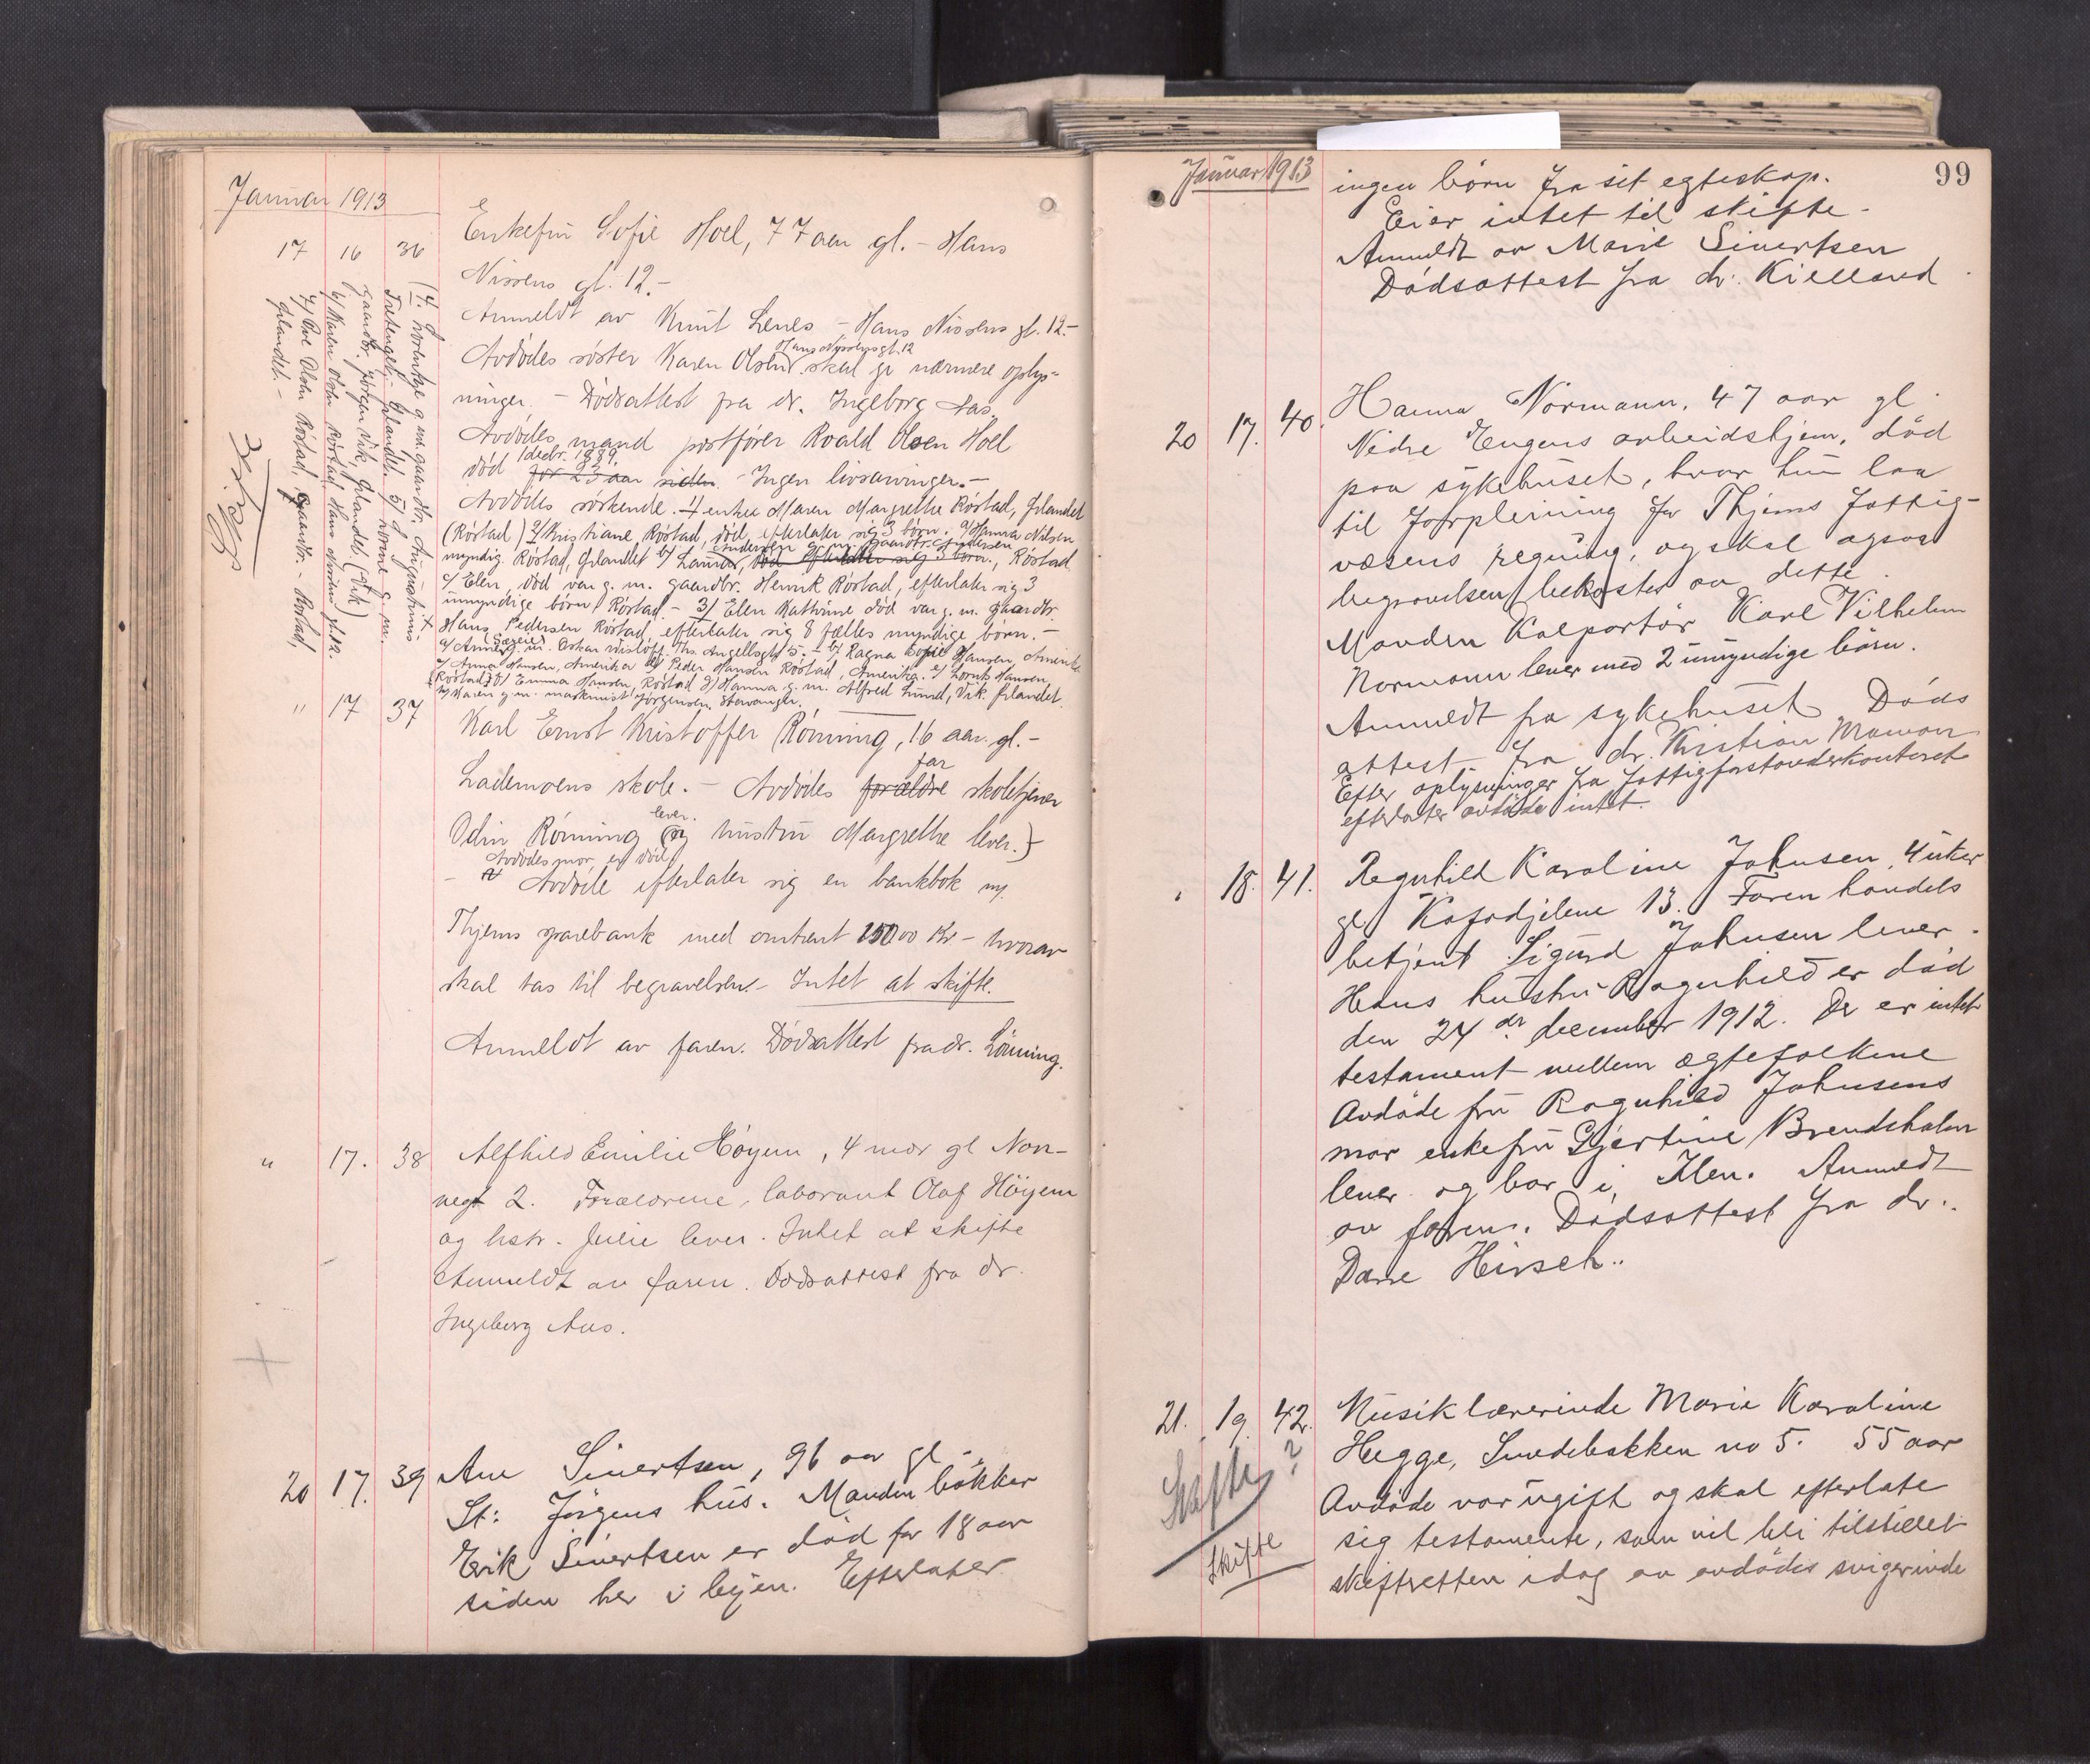 Januar 1913
17 16 36
Enkefru Sofie Hoel, 77 aar gl. – Hans
Nissens gt. 12. –
Anmeldt av Knut Lenes – Hans Nissens gt. 12. –
Hans Nissens gt. 12
Avdødes søster Karen Olsen skal gi nærmere oplys-
ninger. – Dødsattest fra dr. Ingeborg Aas.
Avdødes mand postfører Roald Olsen Hoel
decbr. 1889.
død for 23 aar siden – Ingen livsarvinger. –
Avdødes søskende. 1/ enke Maren Margrethe Röstad, Ørlandet
(Röstad) 2/ Kristiane Röstad, död, efterlater sig 3 börn. a/ Hanna Nilsen
myndig Röstad, Ørlandet b/ Laura, död efterlater sig 3 börn., Röstad
c/ Elen, död var g. m. gaardbr. Henrik Röstad, efterlater sig 3
umyndige börn Röstad – 3/ Elen Kathrine död var g. m. gaardbr.
Hans Pedersen Röstad, efterlater sig 8 fælles myndige börn. –
a/ Anna g. m. Oskar Wisløff, Ths. Angellsgt 5. – b/ Ragna Sofie Hansen, Amerika
c/ Anna Hansen, Amerika d/ Peder Hansen Röstad, Amerika. e/ Hansen,
(Röstad) f/ Emma Hansen, Röstad g/ Hanna g. m. Alfred Lund, Vik. Ørlandet.
h/ Karen g. m. maskinist Jørgensen, Stavanger.
g. m. gaardbr. Augustinus
Ørlandet. 5/
gaardbr. Jørgen Vik, Ørlandet. (Vik)
6/ Karen Olsen Röstad Hans Nissens gt. 12.
7/ Ole Olsen Röstad, gaardbr. – Röstad,
Ørlandet. –
" 17 37
Karl Ernst Kristoffer Rönning, 16 aar. gl. –
far
Lademoens skole. – Avdødes forældre skoletjener
lever.
Odin Rönning (og hustru Margrethe lever.)
Avdødes mor er död
– Avdöde efterlater sig en bankbok
Thjems sparebank med omtrent 15000 Kr – hvorav
skal tas til begravelsen. – Intet at skifte.
Anmeldt av faren. Dödsattest fra dr. Lönning.
" 17. 38
Alfhild Emilie Höyem, 4 mdr gl Non-
negt 2. Forældrene, laborant Olaf Höyem
og hstr. Julie lever. Intet at skifte
Anmeldt av faren. Dødsattest fra dr.
Ingeborg Aas.
20 17. 39
Ane Sivertsen, 96 aar gl.
St: Jörgens hus. Manden bökker
Erik Sivertsen er död for 18 aar
siden her i byen. Efterlater
Januar 1913
99
ingen börn fra sit egteskap.
Eier intet til skifte –
Anmeldt av Marie Sivertsen
Dödsattest fra dr. Kielland
20 17. 40.
Hanna Normann, 47 aar gl.
Nedre Engens arbeidshjem, död
paa sykehuset, hvor hun laa
til forpleining for Thjems Fattig-
væsens regning, og skal ogsaa
begravelsen bekostes av dette.
Manden Kolportör Karl Vilhelm
Normann lever med 2 umyndige börn.
Anmeldt fra sykehuset Döds
attest fra dr. Kristian Mamon
Efter oplysninger fra fattigforstanderkontoret
efterlater avdöde intet.
" 18. 41.
Ragnhild Karoline Johnsen, 4 uker
gl. 13. Faren handels
betjent Sigurd Johnsen lever.
Hans hustru Ragnhild er död
den 24de december 1912. Der er intet
testament mellem ægtefolkene
Avdöde fru Ragnhild Johnsens
mor enkefru Gjertine Brendsholm
lever og bor i Ilen. Anmeldt
av faren. Dödsattest fra dr.
Darre Hirsch..
21. 19. 42.
Musiklærerinde Marie Karoline
Hegge, Smedebakken no 5. 55 aar
Avdöde var ugift og skal efterlate
sig testamente, som vil bli tilstillet
skifteretten idag av avdödes svigerinde
Skifte ?
Skifte